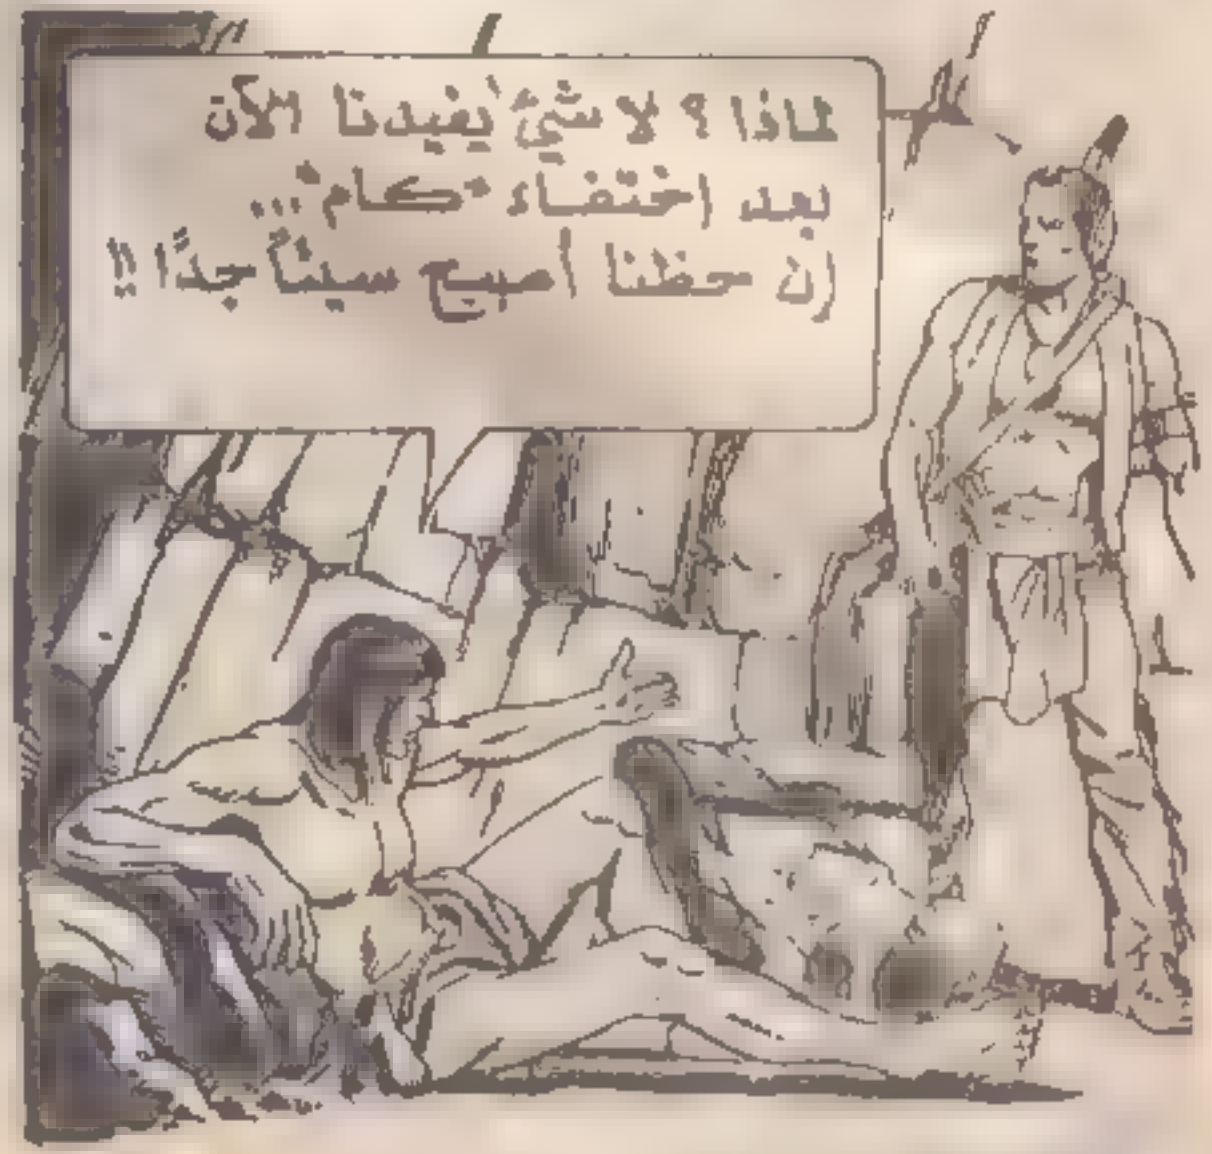 لماذا ؟ لا شيئ يفيدنا الآن
بعد اختفاء "كام" ...
إن حظنا أصبح سيئاً جدًا !!